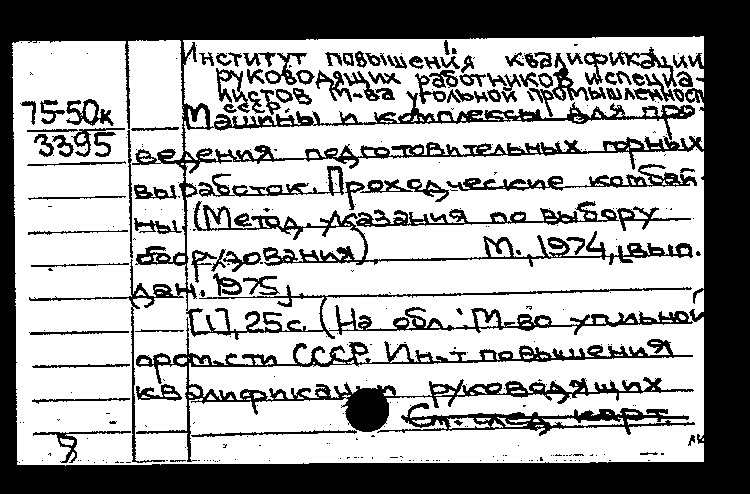 Институт повышения квалификации
руководящих работников и специа-
листов М-ва угольной промышленност
СССР.
75-50к
Машины и комплексы для про-
3395
ведения подготовительных горных
выработок. Проходческие комбай-
ны. (Метод. указания по выбору
оборудования). М., 1974, [вып.
дан. 1975].
[1], 25 с. (На обл.: М-во угольной
пром-сти СССР. Ин-т повышения
квалификации руководящих
См. след. карт.
8